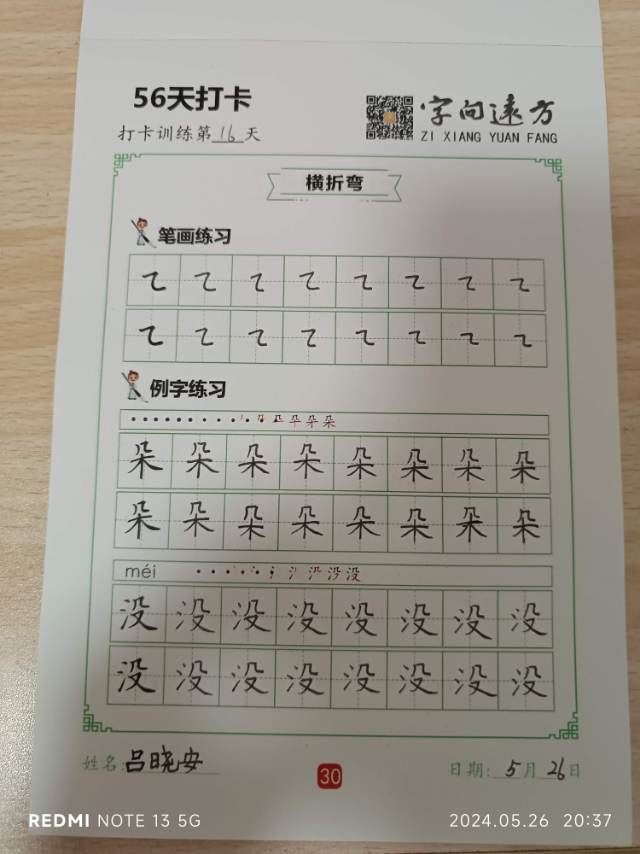 56天打卡
字向远方
打卡训练第16天
ZI XIANG YUAN FANG
横折弯
笔画练习
㇍ ㇍ ㇍ ㇍ ㇍ ㇍ ㇍ ㇍
㇍ ㇍ ㇍ ㇍ ㇍ ㇍ ㇍ ㇍
例字练习
朵 朵 朵 朵 朵 朵 朵 朵
朵 朵 朵 朵 朵 朵 朵 朵
méi
没 没 没 没 没 没 没 没
没 没 没 没 没 没 没 没
姓名:吕晓安
30
日期:5月26日
REDMI NOTE 13 5G
2024.05.26 20:37